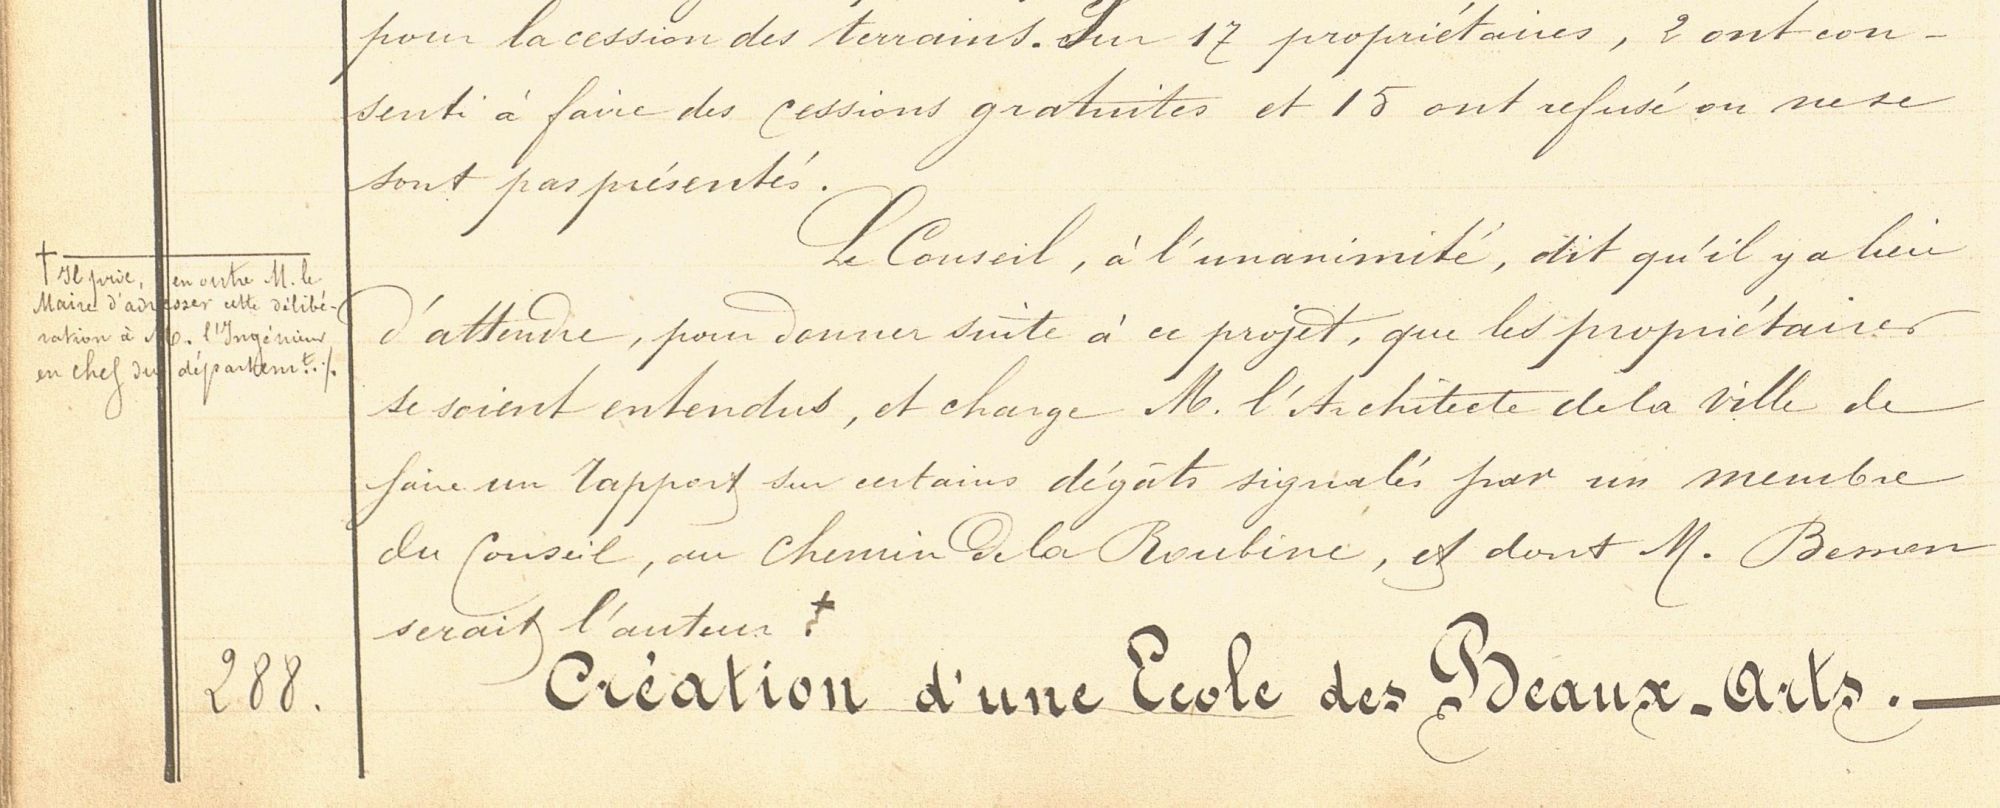 pour la cession des terrains. Sur 17 propriétaires, 2 ont con-
senti à faire des cessions gratuites et 15 ont refusé ou ne se
sont pas présentés.
Le Conseil, à l'unanimité, dit qu'il y a lieu
d'attendre, pour donner suite à ce projet, que les propriétaires
se soient entendus, et charge M. l'Architecte de la ville de
faire un rapport sur certains dégâts signalés par un membre
du Conseil, au chemin de la Roubine, et dont M.
serait l'auteur. †
† Il prie, en outre M. le
Maire d'adresser cette délibé-
ration à M. l'Ingénieur
en chef du départemt. /.
288. Création d'une Ecole des Beaux-Arts. —